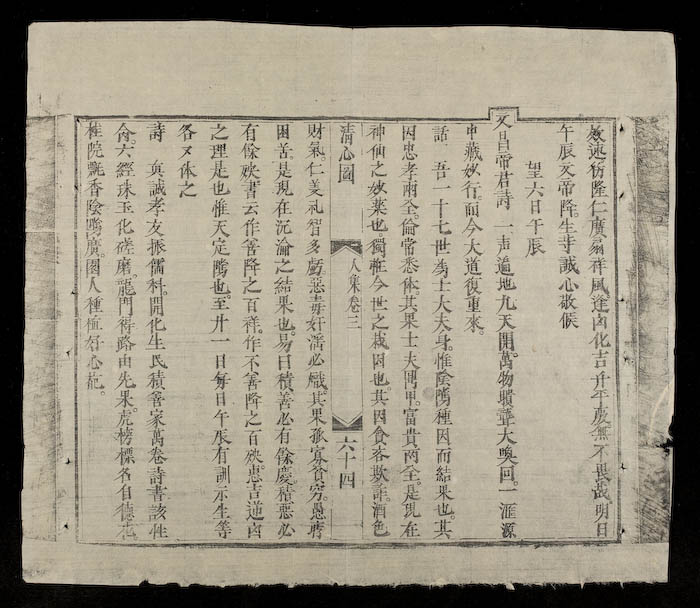 效速彷隆仁廣 祥風逢凶化吉升平處無不畏哉明日
午辰文帝降生寺誠心敬候
望六日午辰
文昌帝君詩 一声遍地九天開萬物聵聾大喚回一滙源
中藏妙行而今大道復重來
話 吾一十七世為士大夫身惟陰隲種因而結果也其
因忠孝兩全倫常悉体其果士夫 甲富貴兩全是現在
神仙之妙藥也獨在今世之栽因也其因貪吝欺詐酒色
清心圓 人集卷三 六十四
財氣仁義礼智多虧惡毒奸滛必熾其果孤寡貧穷愚
困苦是現在沉淪之結果也易曰積善必有餘慶積惡必
有餘殃書云作善降之百祥作不善降之百殃惠吉逆凶
之理是也惟天定隲也至廾一日每日午辰有訓示生等
各又体之
詩 真誠孝友振儒科開化生民積善家萬卷詩書該性
命六經珠玉化磋磨龍門得路由先果虎榜標名自德
桂院飄香陰隲廣園人種植好心